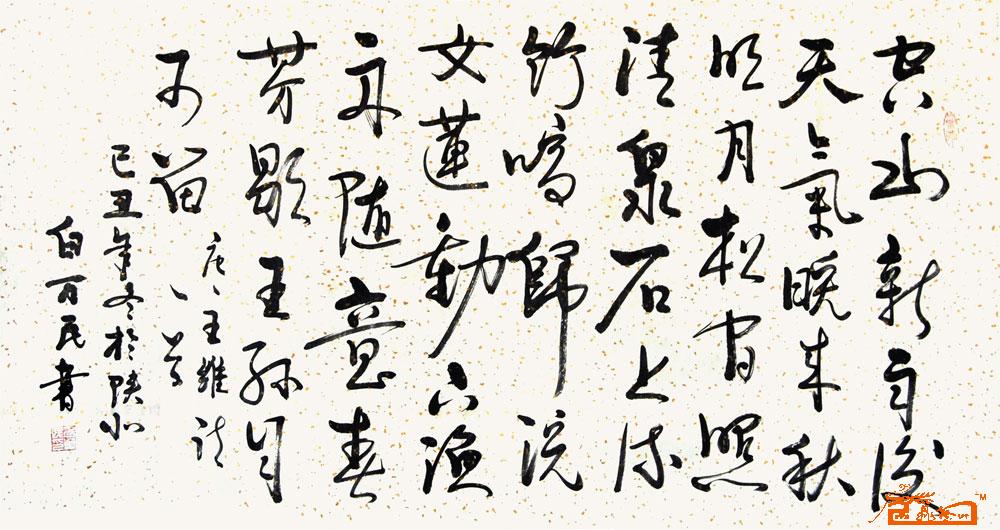 空山新雨後
天氣晚来秋
明月松間照
清泉石上流
竹喧歸浣
女蓮動下漁
舟随意春
芳歇王孫自
可留
唐王維詩
一首
己丑年冬於陝北
白万民書